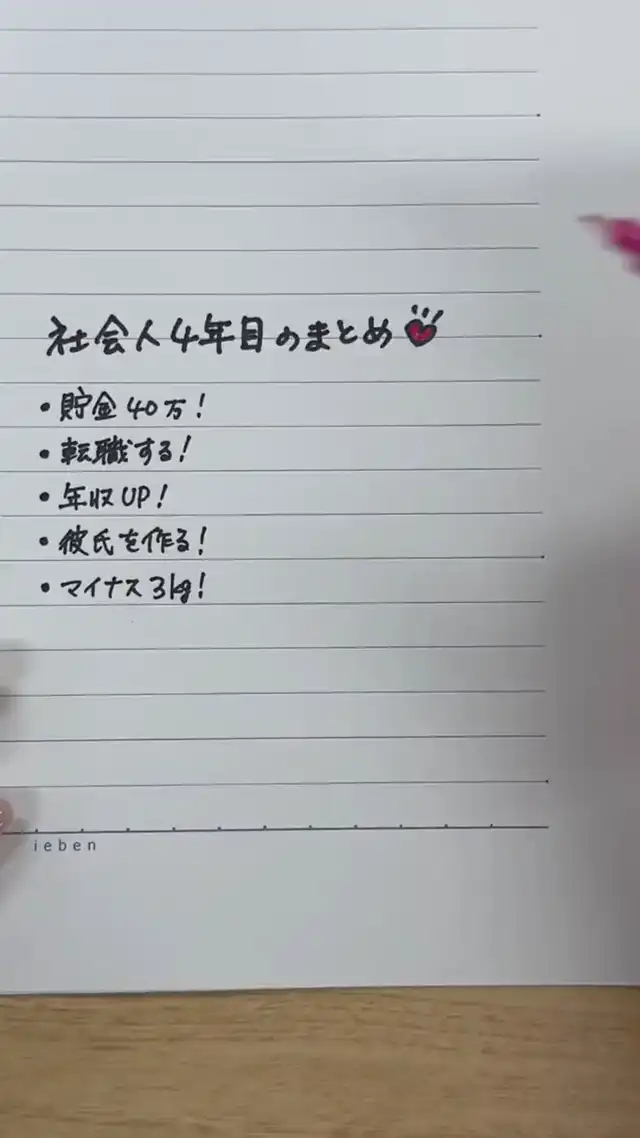 社会人4年目のまとめ
・貯金40万!
・転職する!
・年収UP!
・彼氏を作る!
・マイナス3kg!
ieben